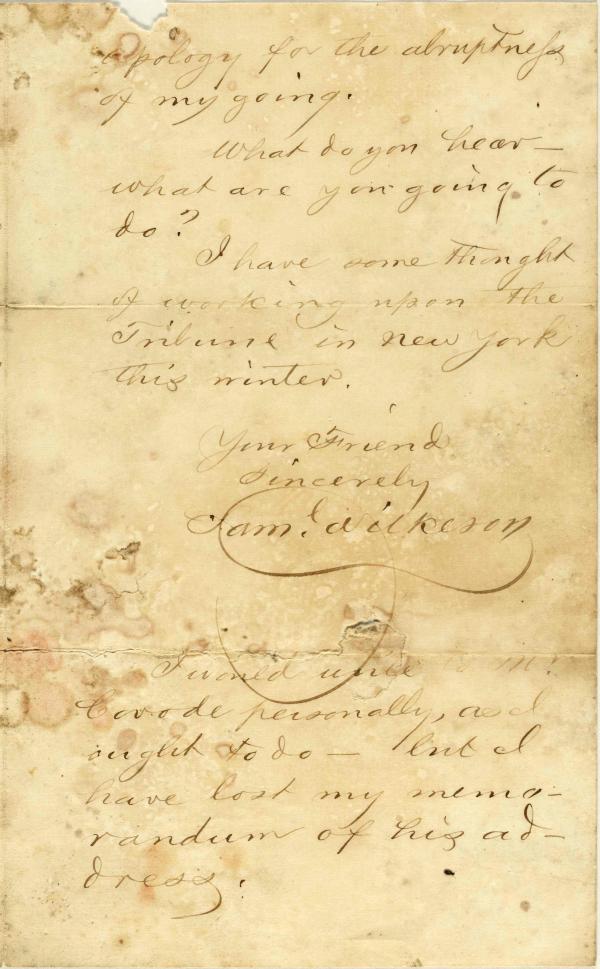 apology for the abruptness
of my going.
What do you hear —
what are you going to
do?
I have some thought
of working upon the
Tribune in New York
this winter.
Your Friend
Sincerely
Saml. Wilkeson
I would write to Mr.
Covode personally, as I
ought to do — but I
have lost my memo-
randum of his ad-
dress.